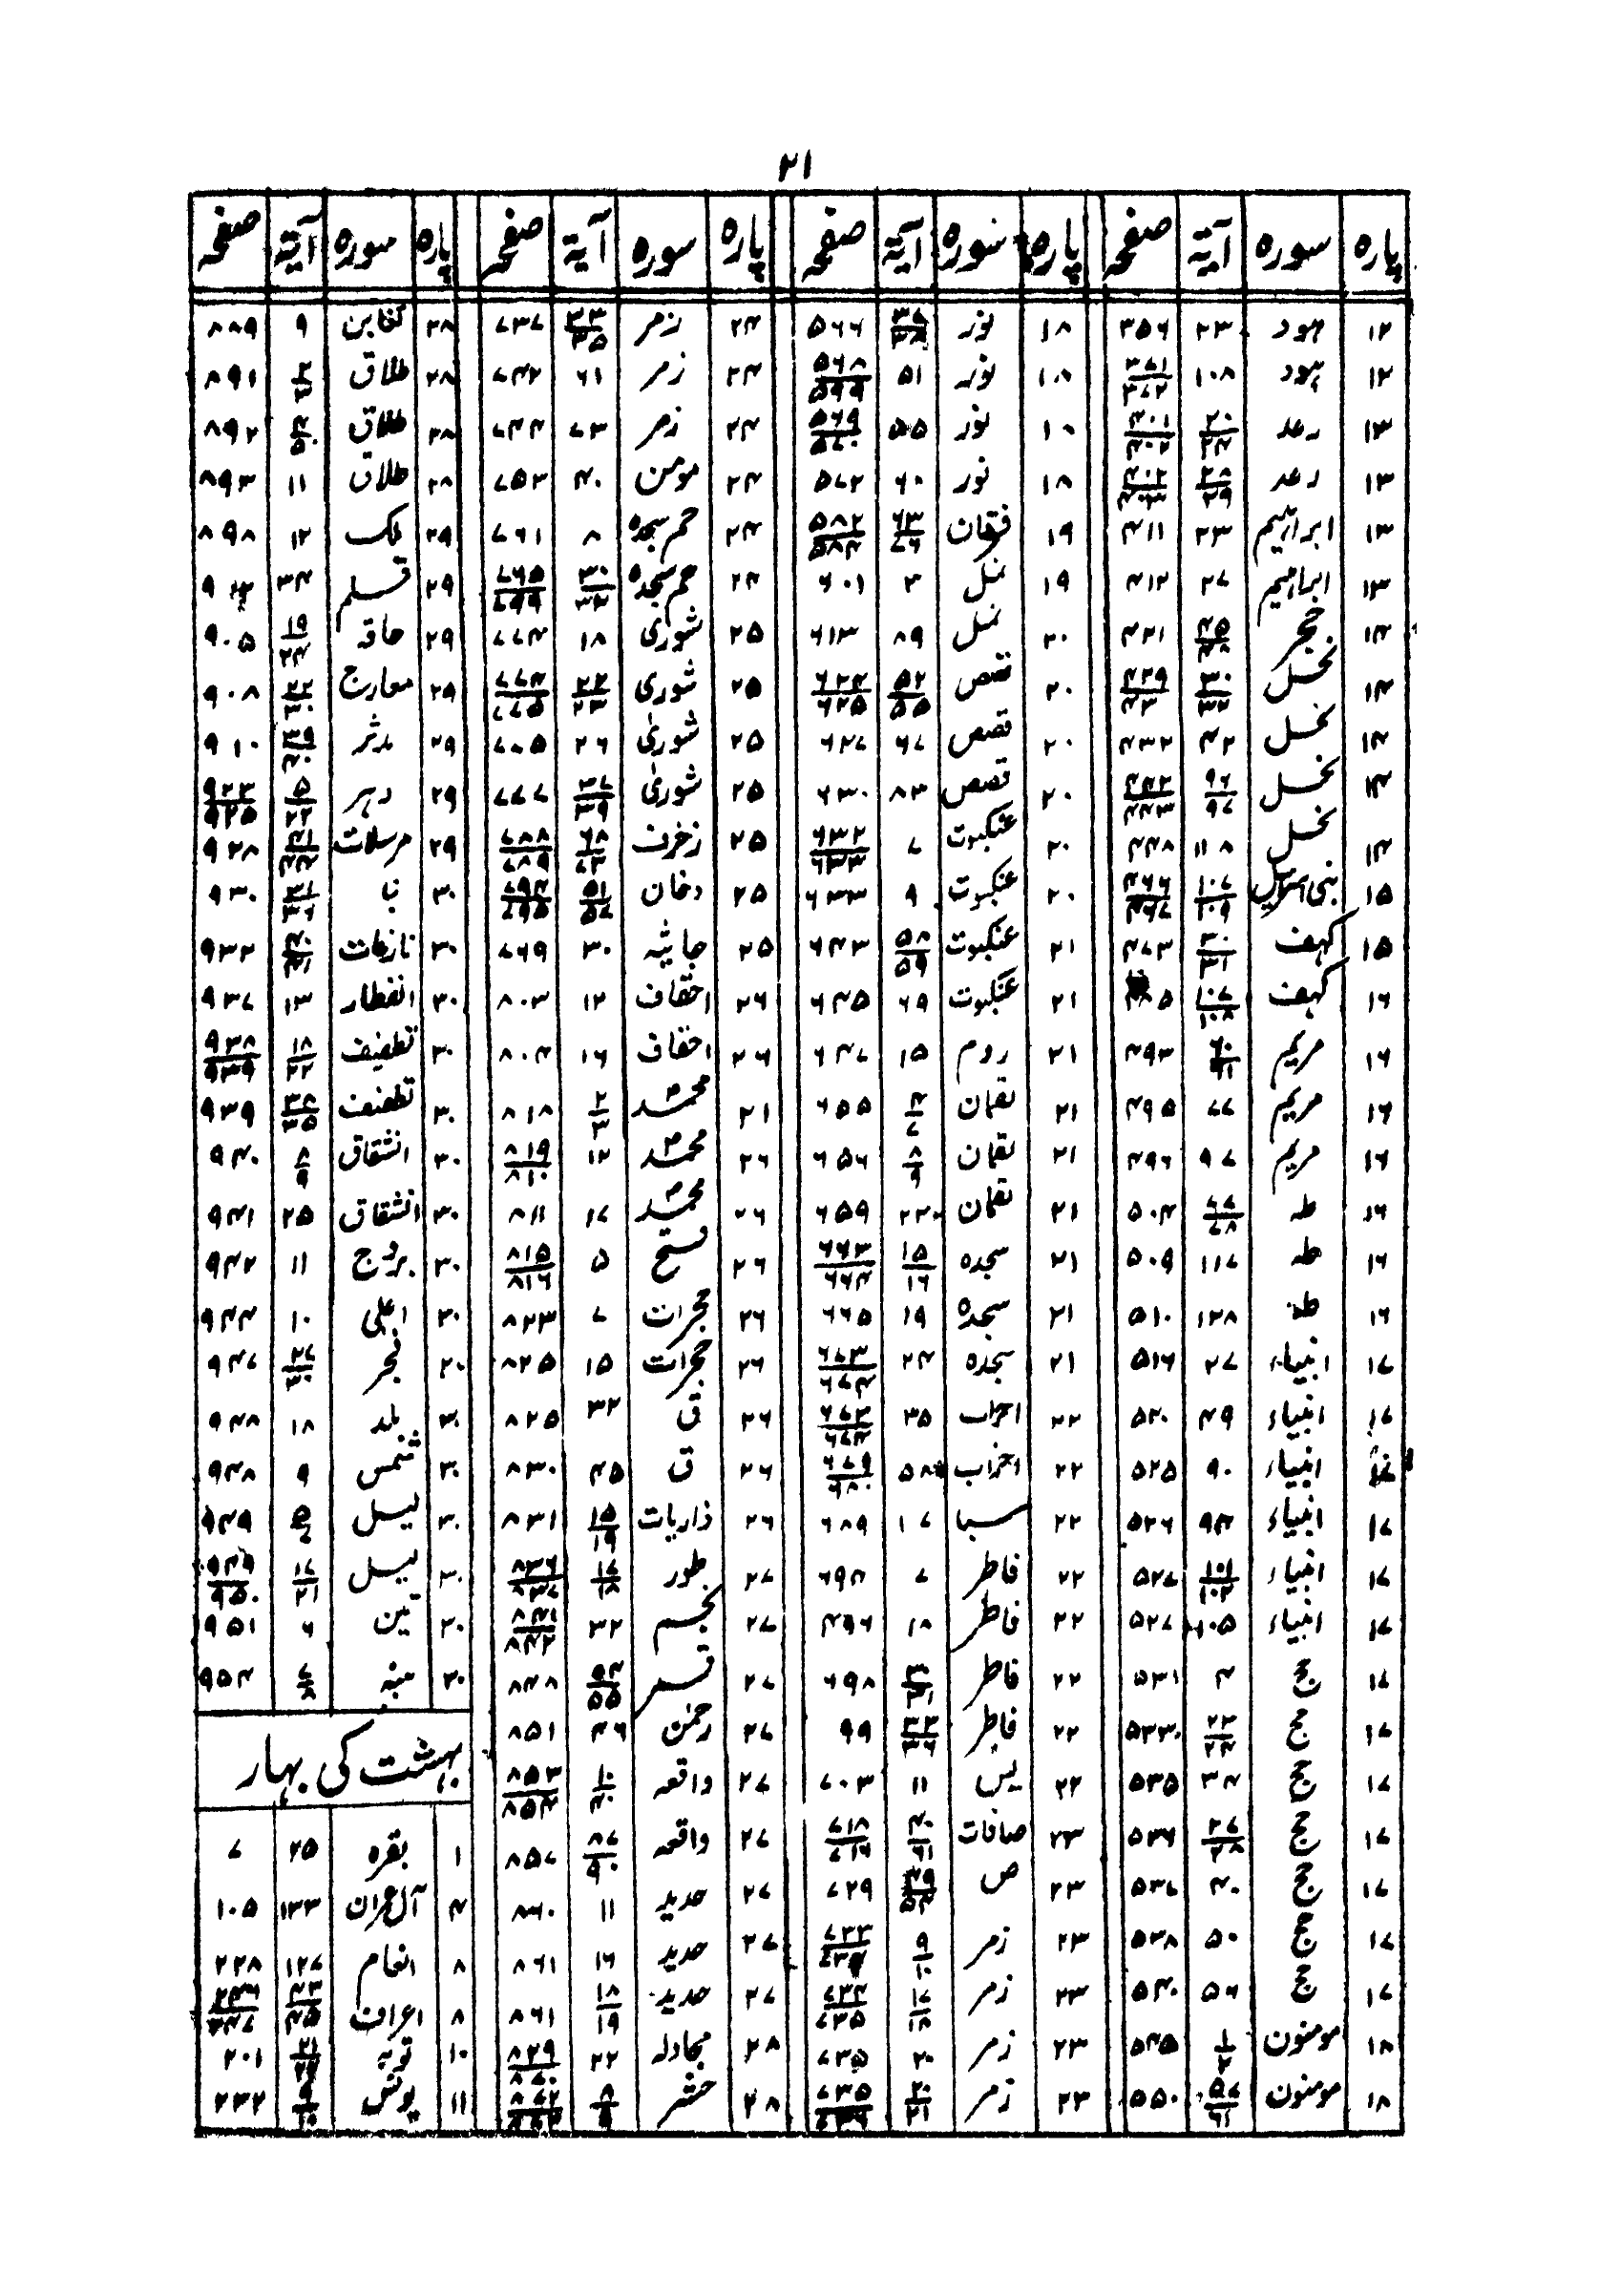 ۲۱
پارہ سورہ آیۃ صفحہ پارہ سورہ آیۃ صفحہ پارہ سورہ آیۃ صفحہ پارہ سورہ آیۃ صفحہ
۱۲ ہود ۲۳ ۳۵۶ ۱۸ نور ۳۷/۳۸ ۵۶۶ ۲۴ زمر ۳۳/۳۵ ۷۳۷ ۲۸ تغابن ۹ ۸۸۹
۱۲ ہود ۱۰۸ ۳۷۱/۳۷۲ ۱۸ نور ۵۱ ۵۶۸/۵۹۹ ۲۴ زمر ۶۱ ۷۴۲ ۲۸ طلاق ۲/۳ ۸۹۱
۱۳ رعد ۲۰/۲۴ ۴۰۱/۴۰۲ ۱۸ نور ۵۵ ۵۶۹/۵۷۰ ۲۴ زمر ۷۳ ۷۴۴ ۲۸ طلاق ۴/۵ ۸۹۲
۱۳ رعد ۲۸/۲۹ ۴۰۲/۴۰۳ ۱۸ نور ۶۰ ۵۷۲ ۲۴ مومن ۴۰ ۷۵۳ ۲۸ طلاق ۱۱ ۸۹۳
۱۳ ابراہیم ۲۳ ۴۱۱ ۱۹ فرقان ۶۳/۷۶ ۵۸۲/۵۸۴ ۲۴ حم سجدہ ۸ ۷۶۱ ۲۹ ملک ۱۲ ۸۹۸
۱۳ ابراہیم ۲۷ ۴۱۲ ۱۹ نمل ۳ ۶۰۱ ۲۴ حم سجدہ ۳۰/۳۲ ۷۶۵/۷۹۹ ۲۹ قلم ۳۴
۱۴ حجر ۴۵/۴۸ ۴۲۱ ۲۰ نمل ۸۹ ۶۱۳ ۲۵ شوری ۱۸ ۷۷۴ ۲۹ حاقہ ۱۹/۲۴ ۹۰۵
۱۴ نحل ۳۰/۳۲ ۲۰ قصص ۵۲/۵۵ ۶۲۴/۶۲۵ ۲۵ شوری ۲۲/۲۳ ۷۷۴/۷۷۵ ۲۹ معارج ۲۲/۳۰ ۹۰۸
۱۴ نحل ۴۲ ۴۳۲ ۲۰ قصص ۶۷ ۶۲۷ ۲۵ شوریٰ ۲۶ ۲۹ مدثر ۳۹/۴۰ ۹۱۰
۱۴ نحل ۹۶/۹۷ ۴۴۲/۴۴۳ ۲۰ قصص ۸۳ ۶۳۰ ۲۵ شوریٰ ۳۷/۳۹ ۷۷۷ ۲۹ دہر ۵/۲۲ ۹۲۳/۹۲۵
۱۴ نحل ۴۴۸ ۲۰ عنکبوت ۷ ۶۳۲/۶۳۳ ۲۵ زخرف ۶۸/۷۳ ۷۸۸/۷۸۹ ۲۹ مرسلات ۴۱/۴۴ ۹۲۸
۱۵ بنی اسرائیل ۱۰۷/۱۰۹ ۴۶۶/۴۶۷ ۲۰ عنکبوت ۹ ۶۳۳ ۲۵ دخان ۵۱/۵۷ ۷۹۴/۷۹۵ ۳۰ نبا ۳۱/۳۶ ۹۳۰
۱۵ کہف ۳۰/۳۱ ۴۷۳ ۲۱ عنکبوت ۵۸/۵۹ ۶۴۳ ۲۵ جاثیہ ۳۰ ۷۶۹ ۳۰ نازعات ۴۰/۴۱ ۹۳۲
۱۶ کہف ۱۰۷/۱۰۸ ۲۱ عنکبوت ۶۹ ۶۴۵ ۲۶ احقاف ۱۲ ۸۰۳ ۳۰ انفطار ۱۳ ۹۳۷
۱۶ مریم ۴۹۳ ۲۱ روم ۱۵ ۶۴۷ ۲۶ احقاف ۱۶ ۸۰۴ ۳۰ تطفیف ۱۸/۲۲ ۹۳۸/۹۳۹
۱۶ مریم ۷۷ ۴۹۵ ۲۱ لقمان ۴/۷ ۶۵۵ ۲۱ محمدؐ ۲/۳ ۸۱۸ ۳۰ تطفیف ۳۴/۳۵ ۹۳۹
۱۶ مریم ۹۷ ۴۹۶ ۲۱ لقمان ۸/۹ ۶۵۶ ۲۶ محمدؐ ۱۲ ۸۱۹/۸۱۰ ۳۰ انشقاق ۸/۹ ۹۴۰
۱۶ طہ ۷۷/۷۸ ۵۰۴ ۲۱ لقمان ۲۲ ۶۵۹ ۲۶ محمدؐ ۱۷ ۸۱۱ ۳۰ انشقاق ۲۵ ۹۴۱
۱۶ طہ ۱۱۷ ۵۰۹ ۲۱ سجدہ ۱۵/۱۶ ۶۶۳/۶۶۴ ۲۶ فتح ۵ ۸۱۵/۸۱۶ ۳۰ بروج ۱۱ ۹۴۲
۱۶ طہ ۱۲۸ ۵۱۰ ۲۱ سجدہ ۱۹ ۶۶۵ ۲۶ حجرات ۷ ۸۲۳ ۳۰ اعلی ۱۰ ۹۴۴
۱۷ انبیاء ۲۷ ۵۱۶ ۲۱ سجدہ ۲۴ ۶۷۳/۶۷۴ ۲۶ حجرات ۱۵ ۸۲۵ ۳۰ فجر ۲۷/۳۰ ۹۴۷
۱۷ انبیاء ۴۹ ۵۲۰ ۲۲ احزاب ۳۵ ۶۷۳/۶۷۴ ۲۶ ق ۳۲ ۸۲۵ ۳۰ بلد ۱۸ ۹۴۸
۱۷ انبیاء ۹۰ ۵۲۵ ۲۲ احزاب ۵۸ ۶۷۹/۶۸۰ ۲۶ ق ۴۵ ۸۳۰ ۳۰ شمس ۹ ۹۴۸
۱۷ انبیاء ۹۴ ۵۲۶ ۲۲ سبا ۱۷ ۶۸۹ ۲۶ ذاریات ۱۵/۱۹ ۸۳۱ ۳۰ لیل ۵/۷ ۹۴۹
۱۷ انبیاء ۱۰۱/۱۰۲ ۵۲۷ ۲۲ فاطر ۷ ۶۹۴ ۲۷ طور ۱۷/۱۸ ۸۳۶/۸۳۷ ۳۰ لیل ۱۷/۲۱ ۹۴۹/۹۵۰
۱۷ انبیاء ۱۰۵ ۵۲۷ ۲۲ فاطر ۱۸ ۴۹۶ ۲۷ نجم ۳۲ ۸۴۱/۸۴۲ ۳۰ تین ۶ ۹۵۱
۱۷ حج ۴ ۵۳۱ ۲۲ فاطر ۶۹۸ ۲۷ قمر ۵۴/۵۵ ۸۴۸ ۳۰ بینہ ۷/۸ ۹۵۴
۱۷ حج ۲۳/۲۴ ۵۳۳ ۲۲ فاطر ۳۳/۳۶ ۹۹ ۲۷ رحمٰن ۴۶ ۸۵۱
بہشت کی بہار
۱۷ حج ۳۴ ۵۳۵ ۲۲ یس ۱۱ ۷۰۳ ۲۷ واقعہ ۱۰/۴۰ ۸۵۳/۸۵۴
۱۷ حج ۳۷/۳۸ ۵۳۶ ۲۳ صافات ۴۰/۶۱ ۷۱۸/۷۱۹ ۲۷ واقعہ ۸۷/۹۰ ۸۵۷ ۱ بقرہ ۲۵ ۷
۱۷ حج ۴۰ ۵۳۷ ۲۳ ص ۴۹/۵۴ ۷۲۹ ۲۷ حدید ۱۱ ۸۶۰ ۴ آل عمران ۱۳۳ ۱۰۵
۱۷ حج ۵۰ ۵۳۸ ۲۳ زمر ۹/۱۰ ۲۷ حدید ۱۶ ۸۶۱ ۸ انعام ۱۲۷ ۲۲۸
۱۷ حج ۵۶ ۵۴۰ ۲۳ زمر ۱۷/۱۸ ۷۳۴/۷۳۵ ۲۷ حدید ۱۸/۱۹ ۸۶۱ ۸ اعراف ۴۳/۴۵
۱۸ مومنون ۱/۲ ۵۴۵ ۲۳ زمر ۲۰ ۷۳۵ ۲۸ مجادلہ ۲۲ ۱۰ توبہ ۲۰۱
۱۸ مومنون ۵۷/۶۱ ۵۵۰ ۲۳ زمر ۲۰/۲۱ ۷۳۵/۷۳۶ ۲۸ حشر ۸/۹ ۱۱ یونس ۹/۱۰ ۲۳۲